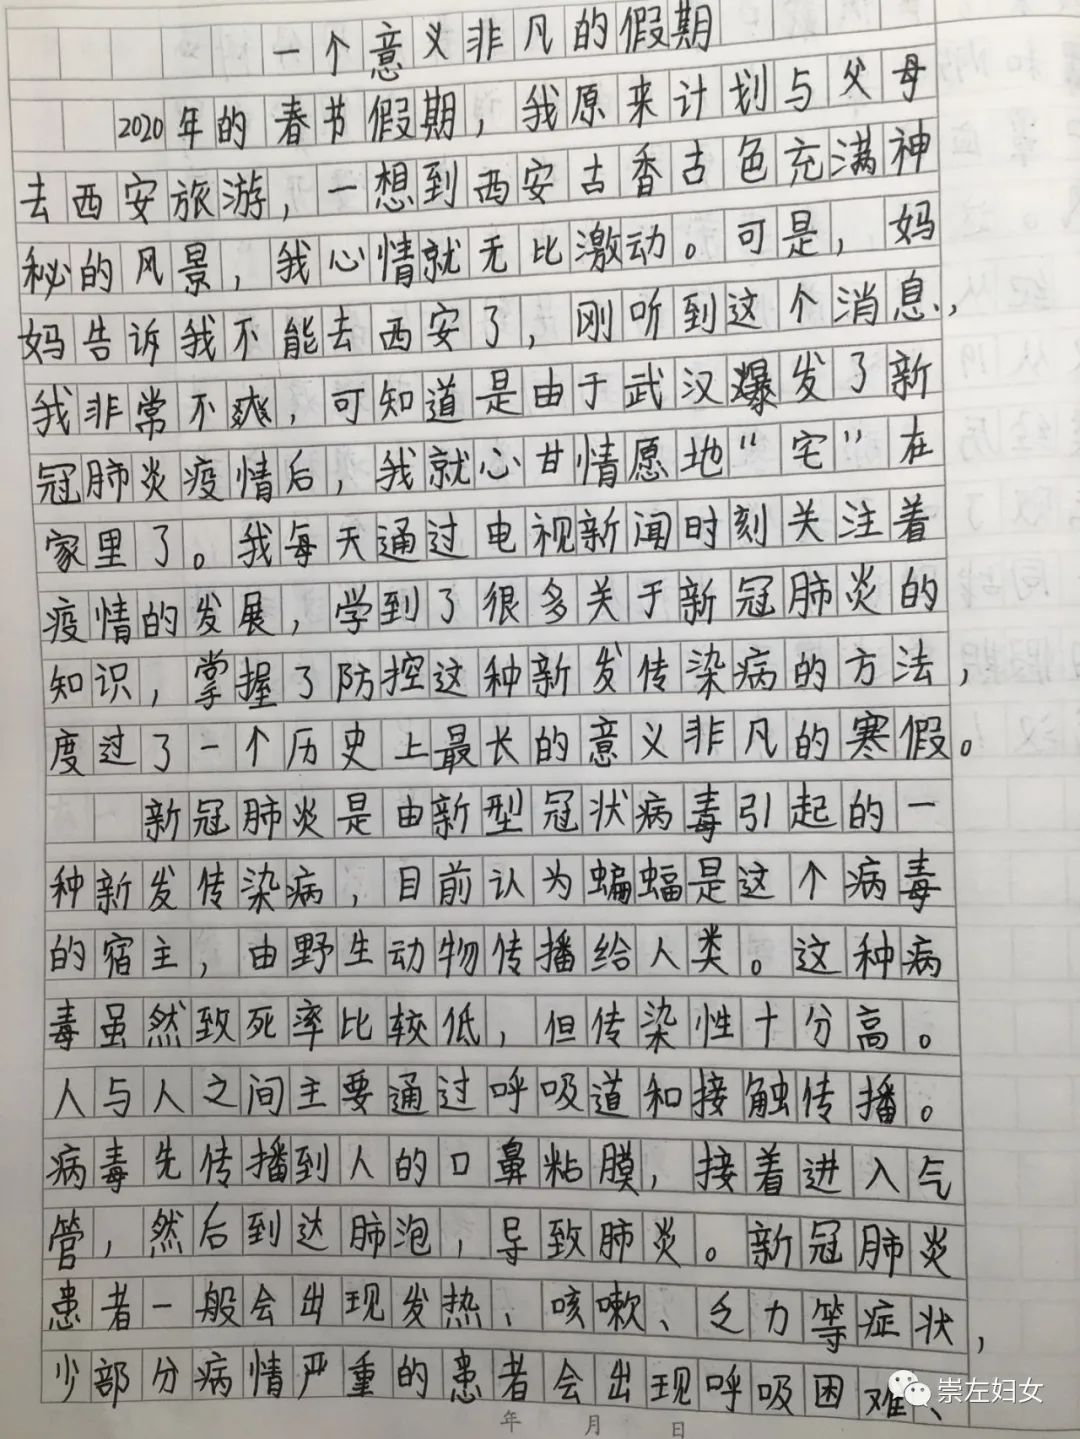 一个意义非凡的假期
2020年的春节假期，我原来计划与父母
去西安旅游，一想到西安古香古色充满神
秘的风景，我心情就无比激动。可是，妈
妈告诉我不能去西安了，刚听到这个消息，
我非常不爽，可知道是由于武汉爆发了新
冠肺炎疫情后，我就心甘情愿地“宅”在
家里了。我每天通过电视新闻时刻关注着
疫情的发展，学到了很多关于新冠肺炎的
知识，掌握了防控这种新发传染病的方法，
度过了一个历史上最长的意义非凡的寒假。
新冠肺炎是由新型冠状病毒引起的一
种新发传染病，目前认为蝙蝠是这个病毒
的宿主，由野生动物传播给人类。这种病
毒虽然致死率比较低，但传染性十分高。
人与人之间主要通过呼吸道和接触传播。
病毒先传播到人的口鼻粘膜，接着进入气
管，然后到达肺泡，导致肺炎。新冠肺炎
患者一般会出现发热、咳嗽、乏力等症状，
少部分病情严重的患者会出现呼吸困难、
年 月 日
崇左妇女